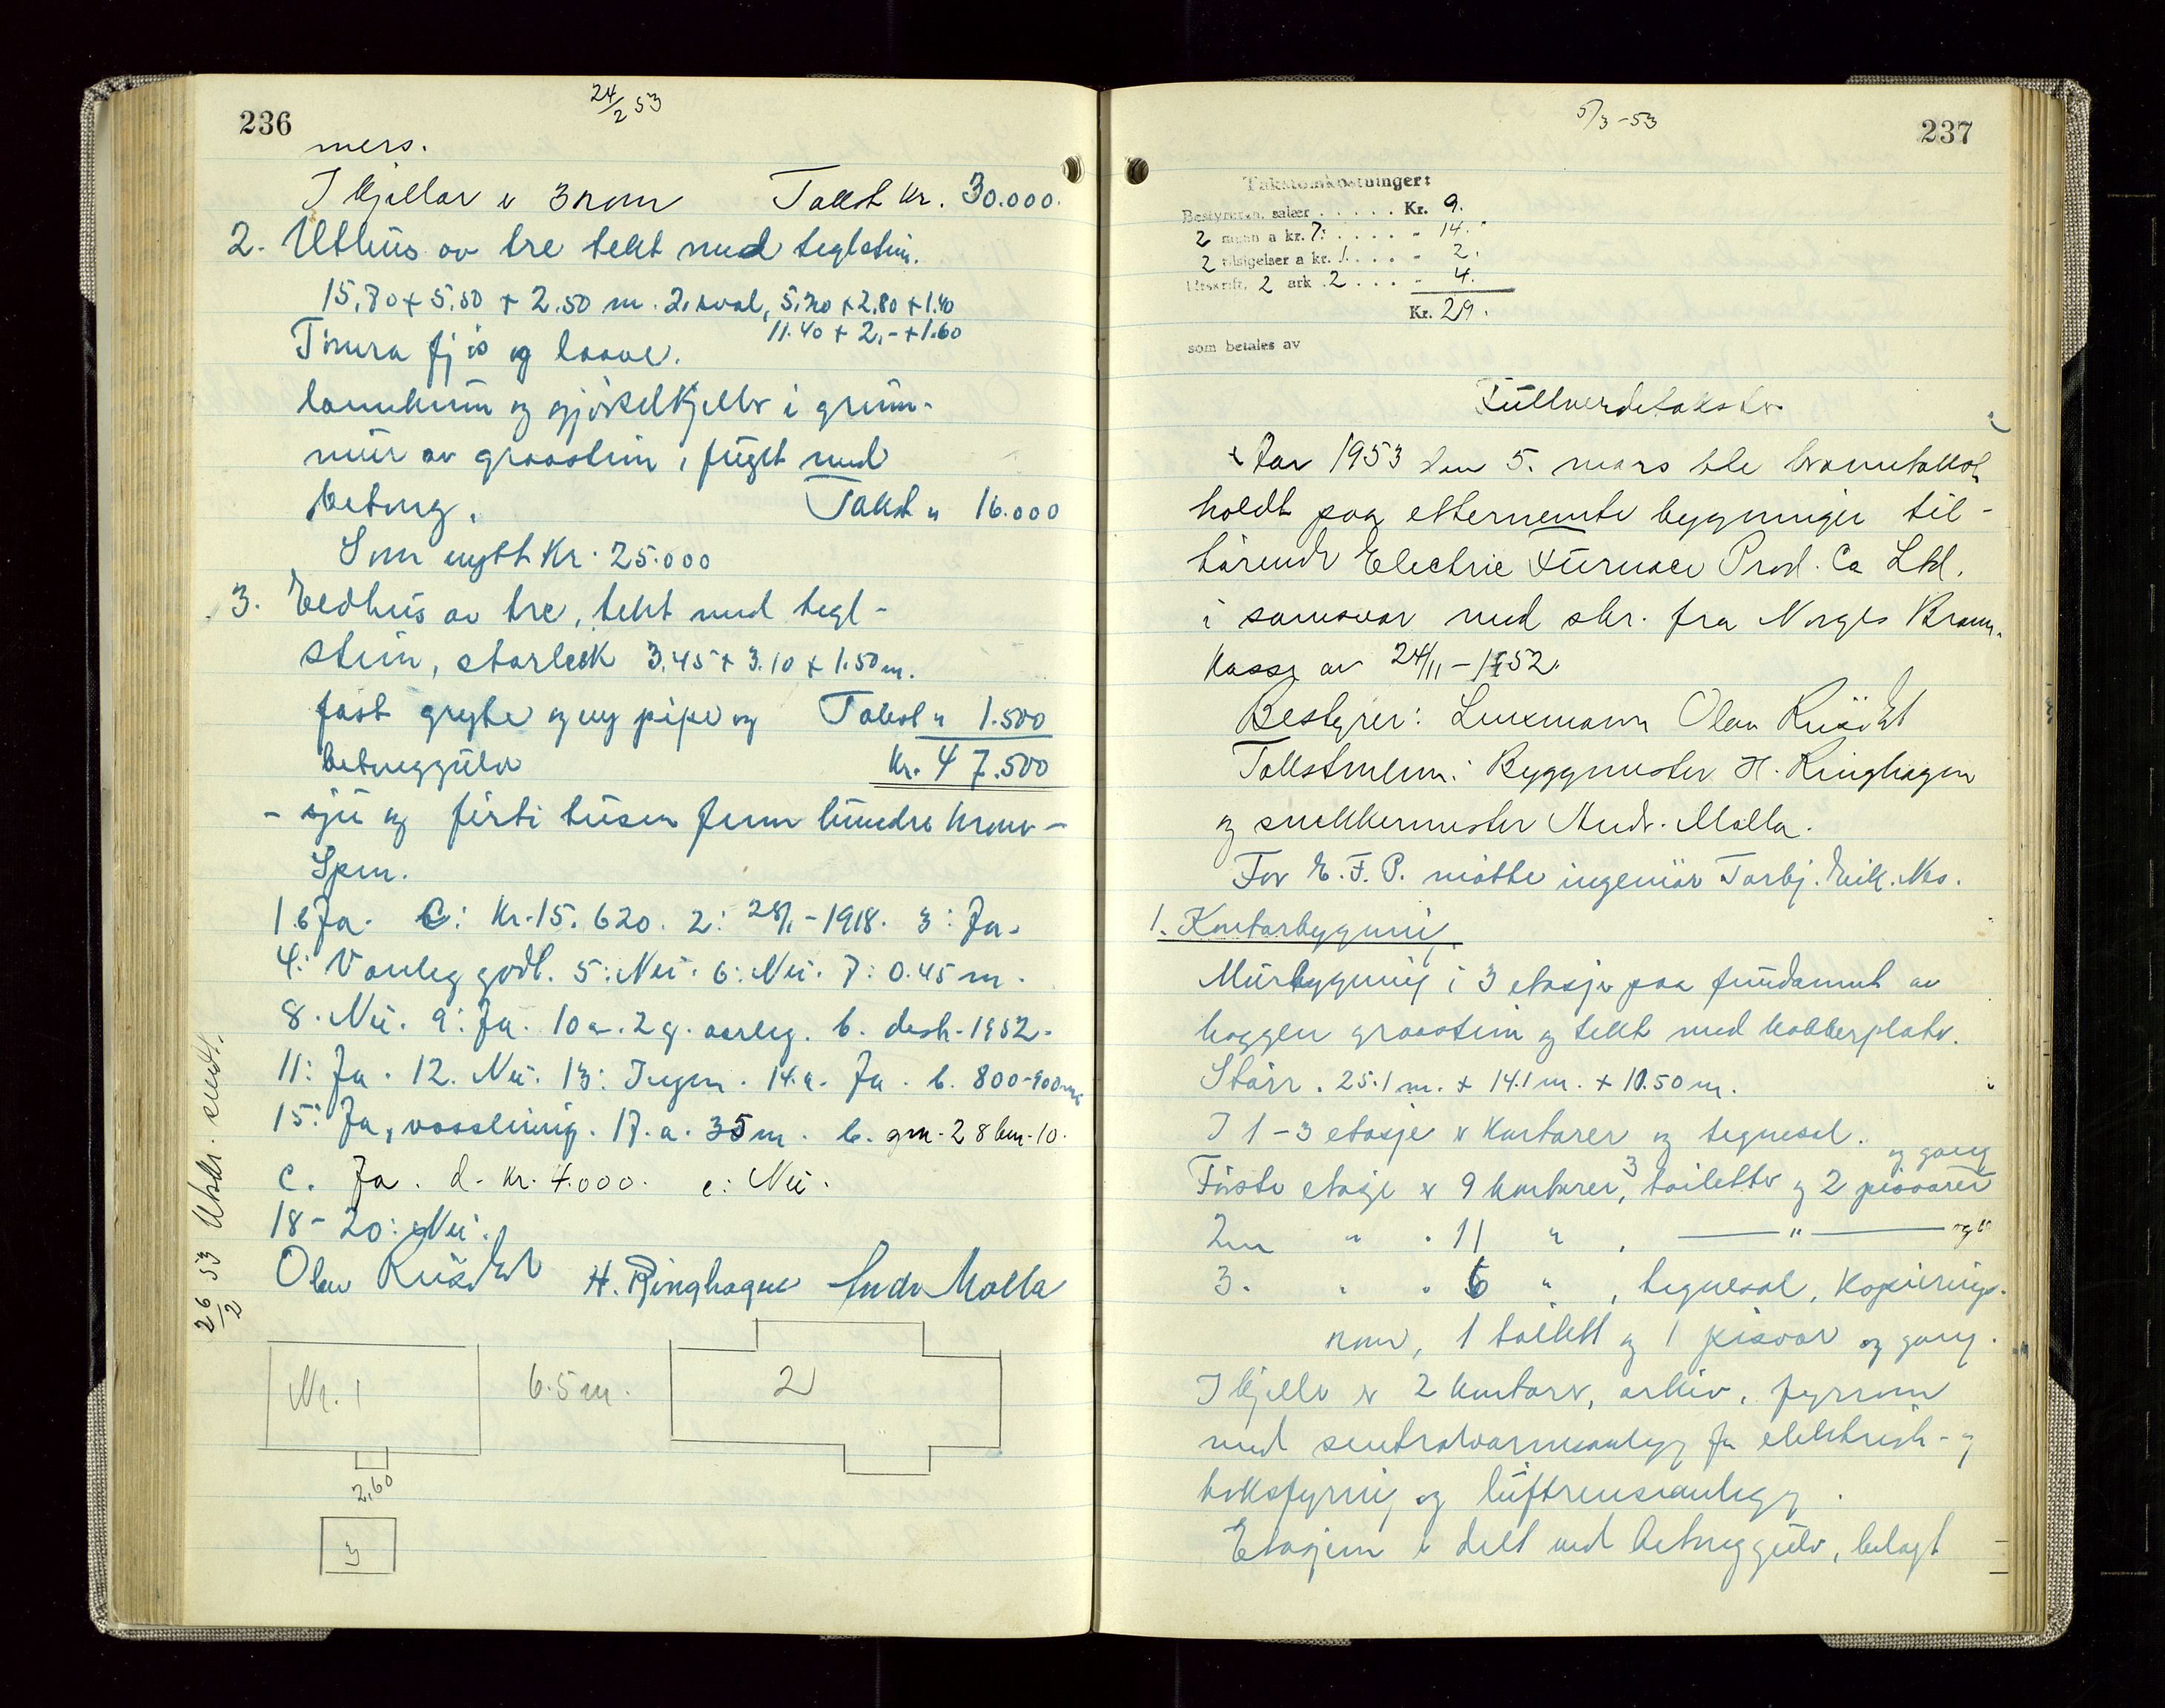 236
24/2 53
mers.
I kjellar er 3 rom Takst kr. 30.000.
2. Uthus av tre tekt med teglstein.
15,80 + 5,50 + 2,50 m. 2. sval, 5,20 + 2,80 + 1.40
11.40 + 2,- + 1.60
fjøs og laave.
og gjødselkjeller i grun-
mur av graastein, fuget med
betong. Takst " 16.000
Som nytt kr. 25.000
3. Eldhus av tre, tekt med tegl-
stein, storleik 3,45 + 3.10 + 1.50 m.
fast gryte og ny pipe og Takst " 1.500
betonggulv Kr. 47.500
- sju og førti tusen fem hundre kroner -
Spm.
1 b Ja. C: Kr. 15.620. 2: 28/1 - 1918. 3: Ja.
4: Vanleg godt. 5: Nei. 6: Nei. 7: 0.45 m.
8. Nei. 9: Ja. 10 a. 2 g. aarleg. b. des. - 1952.
11: Ja. 12. Nei. 13: Ingen. 14. a. Ja. b. 800-900 m
15: Ja, vassleining. 17. a. 35 m. b. gm. 28 bm. 10.
c. Ja. d. Kr. 4.000. e: Nei.
18 - 20: Nei.
Olav H. Ringhagen Andr Molla
26/2 53 Utskr. sendt.
Nr. 1 6.5 m. 2
2,60
3
5/3 - 53
237
Takstomkostninger:
Bestyreren, salær . . . . . Kr. 9.
2 mann a kr. 7: . . . . . - 14.
2 tilsigelser a kr. 1. . . . - 2.
Utskrift, 2 ark 2 . . . - 4.
Kr. 29.
som betales av
Fullverditakster
Aar 1953 den 5. mars ble branntakst
holdt paa etternemnte bygninger til-
hørende Electric Furnace Prod. Co Ltd.
i samsvar med skr. fra Norges Brann-
kasse av 24/11 - 1952.
Bestyrer: Lensmann Olav
Takstmenn: Byggmester H. Ringhagen
og snekkermester Andr. Molla.
For E. F. P. møtte ingeniør Torbj. Eik. Nes.
1. Kontorbygning
Murbygning i 3 etasjer paa fundament av
hoggen graastein og tekt med kobberplater.
Størr. 25.1 m. + 14.1 m. + 10.50 m.
I 1 - 3 etasje er kontorer og tegnesal.
og gang
Første etasje er 9 kontorer, 3 toiletter og 2 pissoarer
2en " " 11 " , — " —
3. " " 6 " , tegnesal, kopierings-
rom, 1 toilett og 1 pissoar og gang.
I kjeller er 2 kontorer, arkiv, fyrrom
med sentralvarmeanlegg for elektrisk- og
koksfyring og luftrenseanlegg.
Etasjene er delt ved betonggulv, belagt